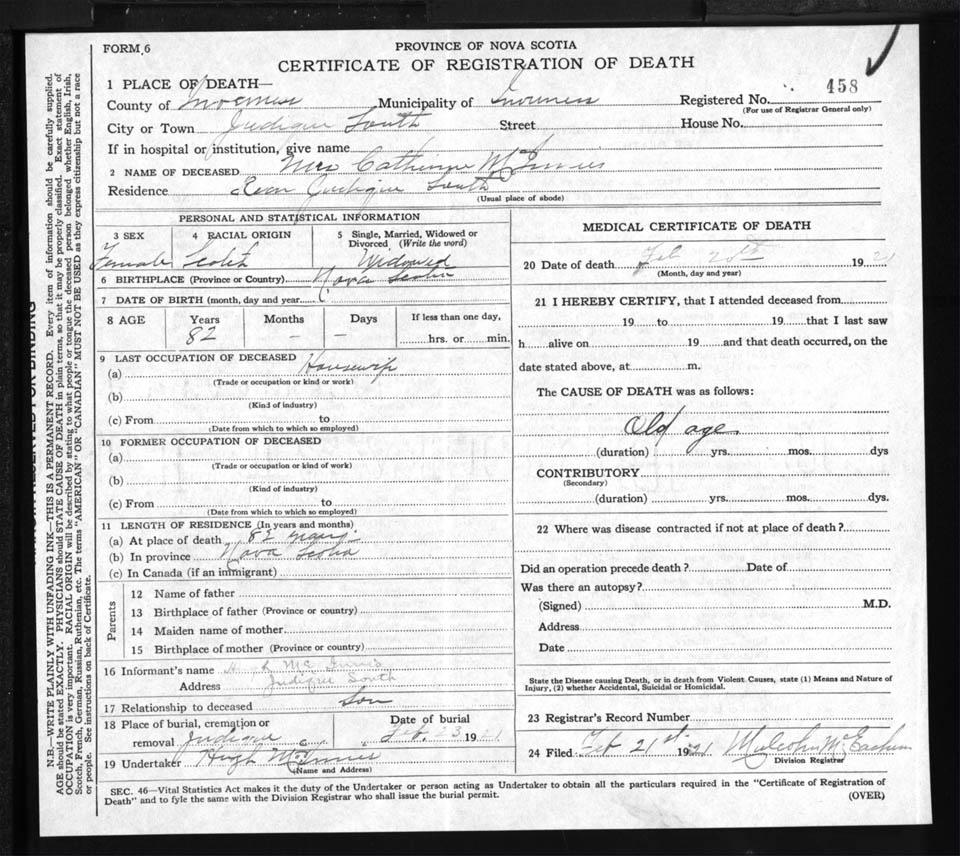 FORM 6
PROVINCE OF NOVA SCOTIA
CERTIFICATE OF REGISTRATION OF DEATH
458
1 PLACE OF DEATH—
County of Inverness Municipality of Inverness Registered No.
(For use of Registrar General only)
City or Town Judique South Street House No.
If in hospital or institution, give name
2 NAME OF DECEASED Mrs Catherine McInnis
Residence Judique South
(Usual place of abode)
PERSONAL AND STATISTICAL INFORMATION
3 SEX 4 RACIAL ORIGIN 5 Single, Married, Widowed or Divorced (Write the word)
Female Scotch Widowed
6 BIRTHPLACE (Province or Country) Nova Scotia
7 DATE OF BIRTH (month, day and year
8 AGE Years Months Days If less than one day,
82 – – hrs. or min.
9 LAST OCCUPATION OF DECEASED
(a) Housewife
(Trade or occupation or kind or work)
(b)
(Kind of industry)
(c) From to
(Date from which to which so employed)
10 FORMER OCCUPATION OF DECEASED
(a)
(Trade or occupation or kind of work)
(b)
(Kind of industry)
(c) From to
(Date from which to which so employed)
11 LENGTH OF RESIDENCE (In years and months)
(a) At place of death 82 years
(b) In province Nova Scotia
(c) In Canada (if an immigrant)
Parents
12 Name of father
13 Birthplace of father (Province or country)
14 Maiden name of mother
15 Birthplace of mother (Province or country)
16 Informant's name Hugh McInnis
Address Judique South
17 Relationship to deceased Son
18 Place of burial, cremation or removal Judique Date of burial Feb. 23 1921
19 Undertaker Hugh McInnis
(Name and Address)
MEDICAL CERTIFICATE OF DEATH
20 Date of death Feb 20th 1921
(Month, day and year)
21 I HEREBY CERTIFY, that I attended deceased from
19 to 19 that I last saw
h alive on 19 and that death occurred, on the
date stated above, at m.
The CAUSE OF DEATH was as follows:
Old age
(duration) yrs. mos. dys
CONTRIBUTORY
(Secondary)
(duration) yrs. mos. dys.
22 Where was disease contracted if not at place of death?
Did an operation precede death? Date of
Was there an autopsy?
(Signed) M.D.
Address
Date
State the Disease causing Death, or in death from Violent Causes, state (1) Means and Nature of
Injury, (2) whether Accidental, Suicidal or Homicidal.
23 Registrar's Record Number
24 Filed Feb 21st 1921 Malcolm McEachern
Division Registrar
SEC. 46—Vital Statistics Act makes it the duty of the Undertaker or person acting as Undertaker to obtain all the particulars required in the "Certificate of Registration of
Death" and to fyle the same with the Division Registrar who shall issue the burial permit.
(OVER)
RESERVED FOR BINDING
N.B.—WRITE PLAINLY WITH UNFADING INK—THIS IS A PERMANENT RECORD. Every item of information should be carefully supplied.
AGE should be stated EXACTLY. PHYSICIANS should STATE CAUSE OF DEATH in plain terms, so that it may be properly classified. Exact statement of
OCCUPATION is very important. RACIAL ORIGIN will be described by stating to what people or tongue the deceased person belonged whether English, Irish,
Scotch, French, German, Russian, Ruthenian, etc. The terms "AMERICAN" OR "CANADIAN" MUST NOT BE USED as they express citizenship but not a race
or people. See instructions on back of Certificate.